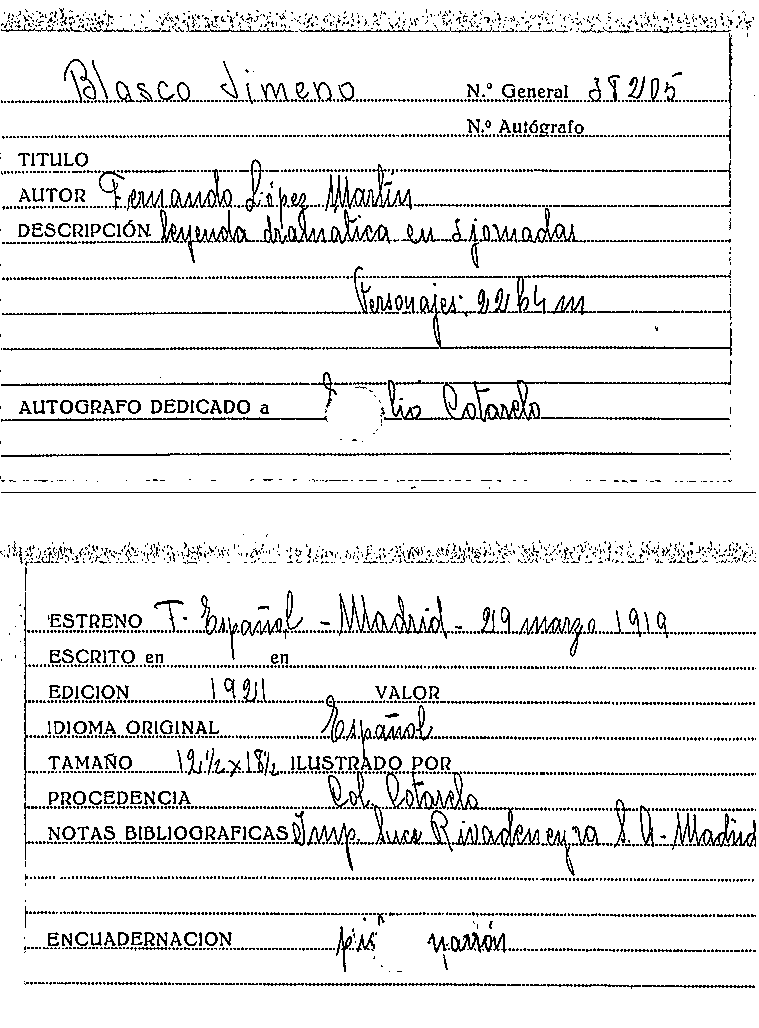 Blasco Jimeno N.º General 38205
N.º Autógrafo
TITULO
AUTOR Fernando López Martín
DESCRIPCIÓN leyenda dramatica en 3 jornadas
Personajes: 22 h 4 m
AUTOGRAFO DEDICADO a lio Cotarelo
ESTRENO T. Español - Madrid - 29 marzo 1919
ESCRITO en en
EDICION 1921 VALOR
IDIOMA ORIGINAL Español
TAMAÑO 12½ x 18½ ILUSTRADO POR
PROCEDENCIA Col. Cotarelo
NOTAS BIBLIOGRAFICAS Imp. Suce Rivadeneyra S. A. - Madrid
ENCUADERNACION piel marrón